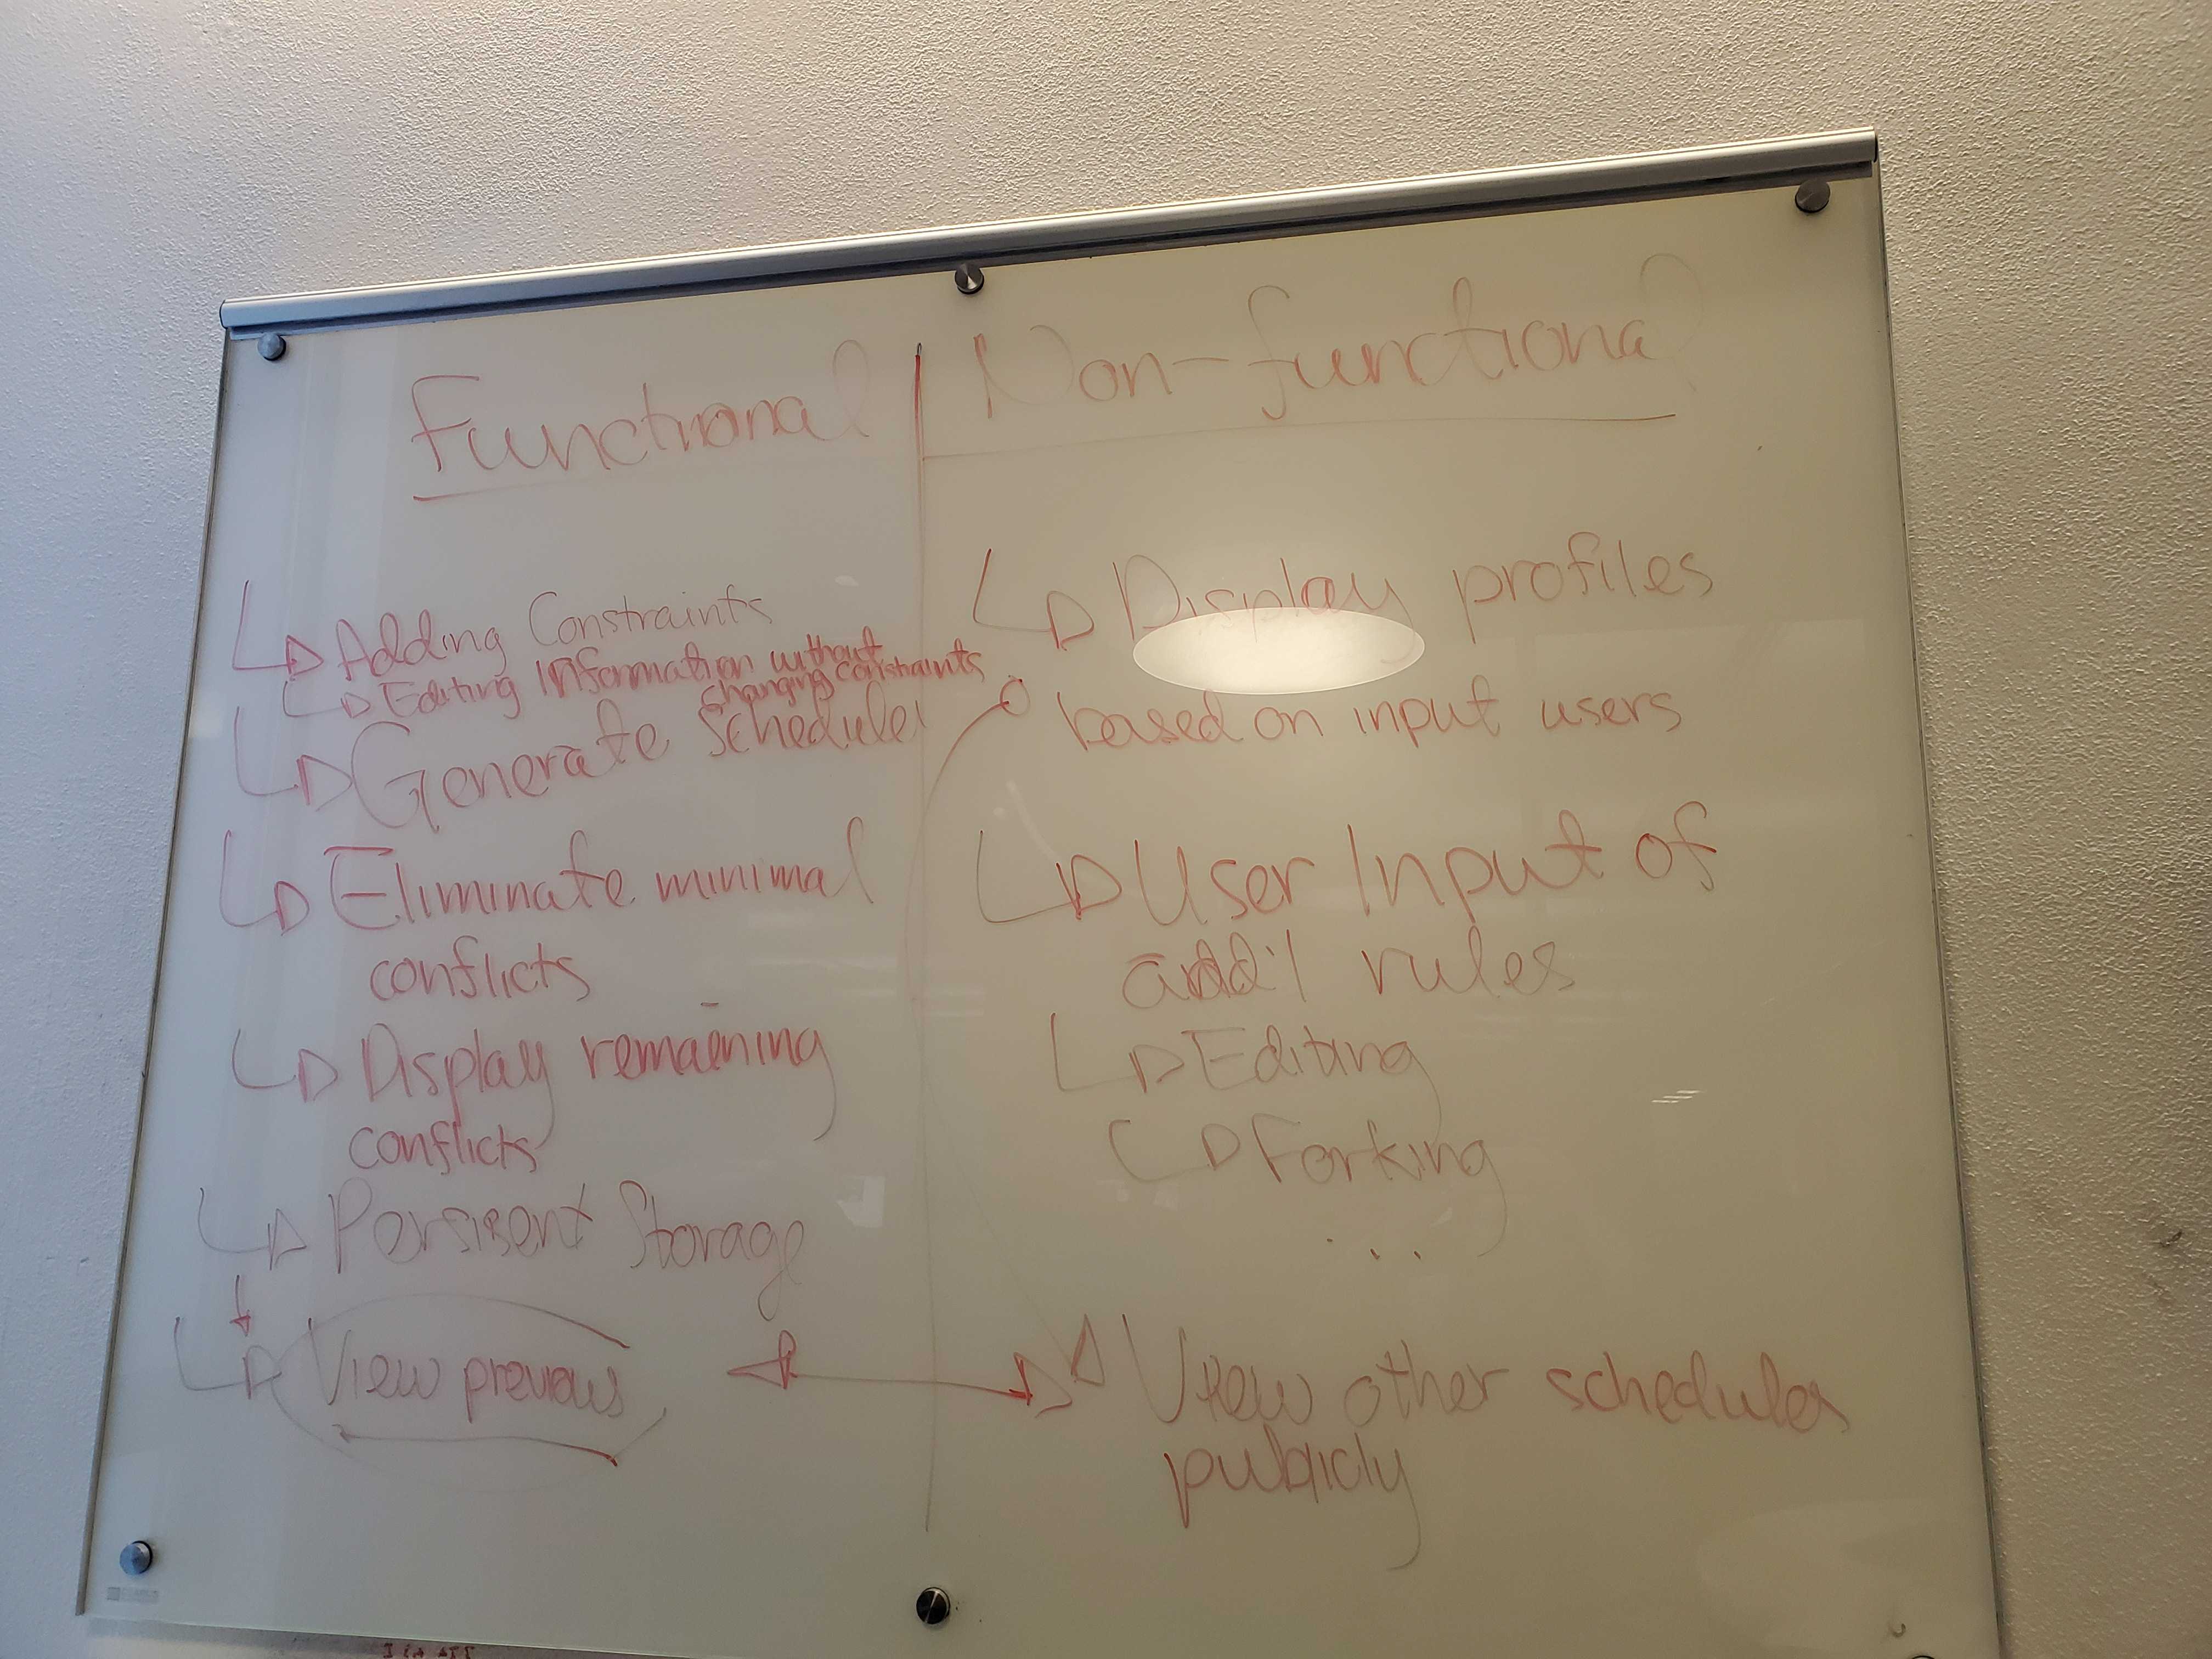 Functional
Adding Constraints
Editing Information without
changing constraints
Generate Schedules
Eliminate minimal
conflicts
Display remaining
conflicts
Persisent Storage
View previous
Non-functional
Display profiles
based on input users
User Input of
add'l rules
Editing
Forking
...
View other schedules
publicly